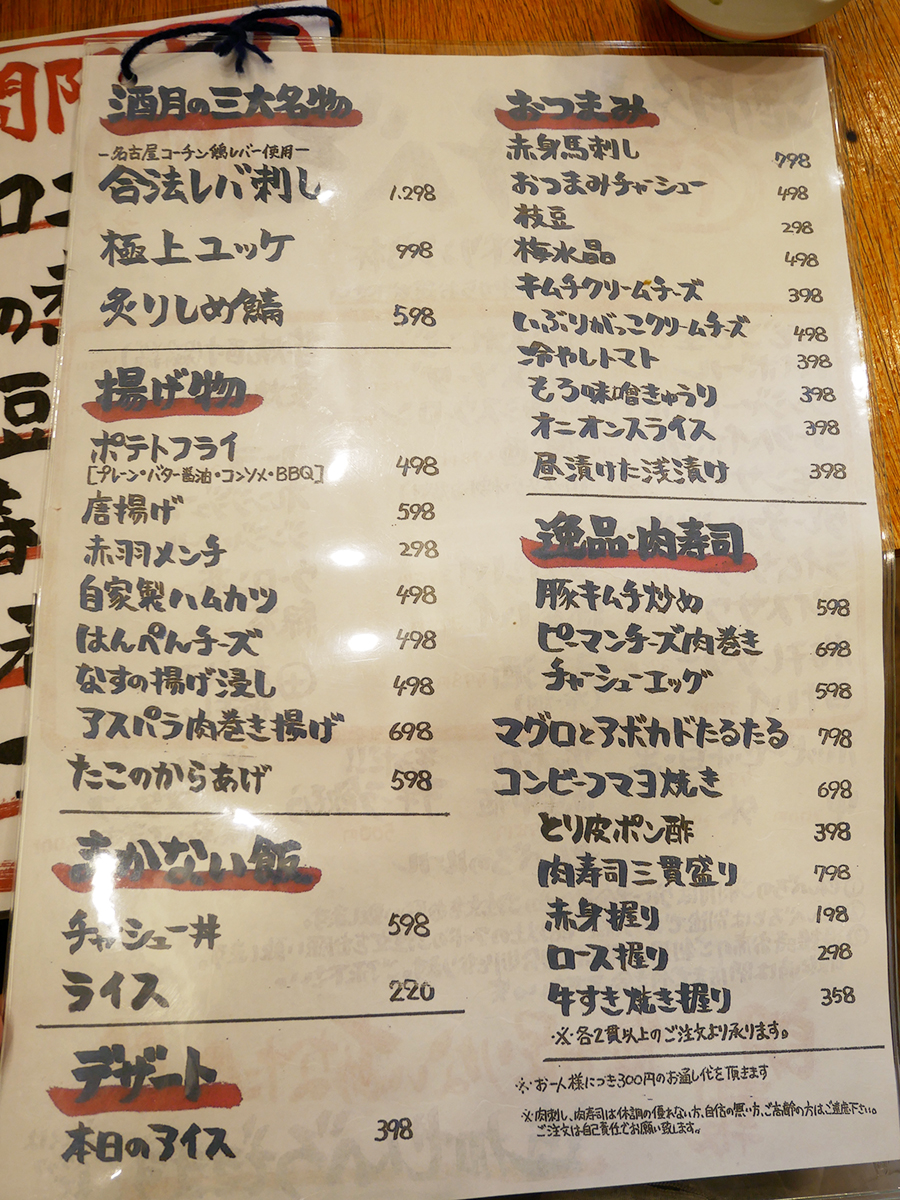 酒月の三大名物
ー名古屋コーチン鶏レバー使用ー
合法レバ刺し 1.298
極上ユッケ 998
炙りしめ鯖 598
揚げ物
ポテトフライ 498
[プレーン・バター醤油・コンソメ・BBQ]
唐揚げ 598
赤羽メンチ 298
自家製ハムカツ 498
はんぺんチーズ 498
なすの揚げ浸し 498
アスパラ肉巻き揚げ 698
たこのからあげ 598
まかない飯
チャーシュー丼 598
ライス 220
デザート
本日のアイス 398
おつまみ
赤身馬刺し 798
おつまみチャーシュー 498
枝豆 298
梅水晶 498
キムチクリームチーズ 398
いぶりがっこクリームチーズ 498
冷やしトマト 398
もろ味噌きゅうり 398
オニオンスライス 398
昼漬けた浅漬け 398
逸品・肉寿司
豚キムチ炒め 598
ピーマンチーズ肉巻き 698
チャーシューエッグ 598
マグロとアボカドたるたる 798
コンビーフマヨ焼き 698
とり皮ポン酢 398
肉寿司三貫盛り 798
赤身握り 198
ロース握り 298
牛すき焼き握り 358
※各2貫以上のご注文より承ります。
※お一人様につき300円のお通し代を頂きます
※肉刺し、肉寿司は体調の優れない方、自信の無い方、ご高齢の方はご遠慮下さい。
ご注文は自己責任でお願い致します。